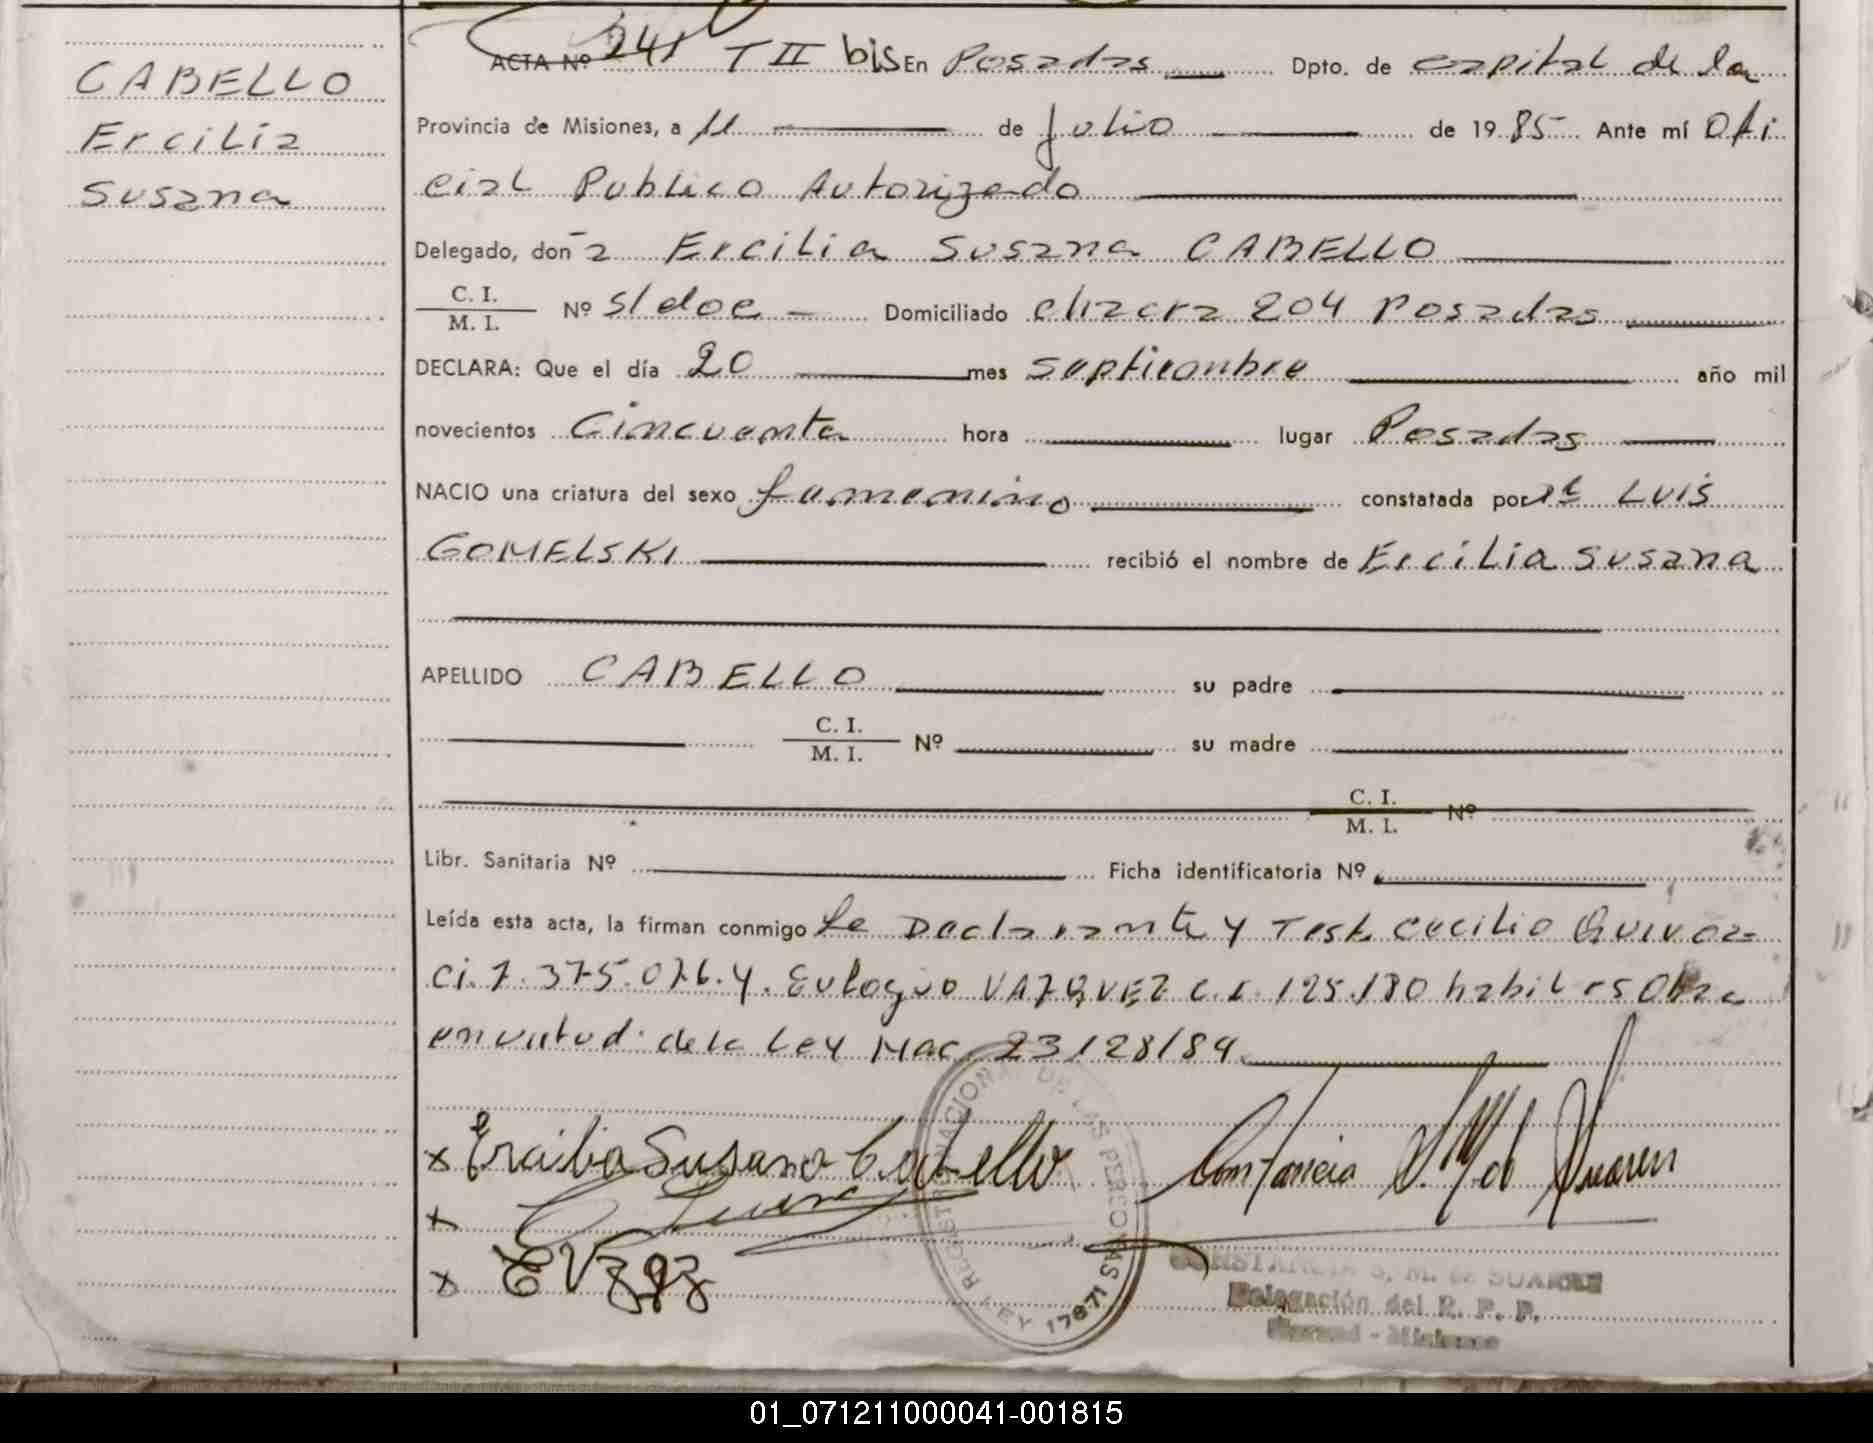 CABELLO
Ercilia
Susana
ACTA Nº 241 T II bis En Posadas Dpto. de capital de la
Provincia de Misiones, a 11 de julio de 1985 Ante mí Ofi
cial Publico Autorizado
Delegado, don-a Ercilia Susana CABELLO
C. I.
M. I. Nº s/doc Domiciliado chacra 204 Posadas
DECLARA: Que el día 20 mes septiembre año mil
novecientos Cincuenta hora lugar Posadas
NACIO una criatura del sexo femenino constatada por LUIS
GOMELSKI recibió el nombre de Ercilia Susana
APELLIDO CABELLO su padre
C. I.
M. I. Nº su madre
C. I.
M. I. Nº
Libr. Sanitaria Nº Ficha identificatoria Nº
Leída esta acta, la firman conmigo La Declarante y Test. Cecilio
Eulogio VAZQUEZ c.i. 125.180 habil
en virtud de la Ley Nac. 23128/84
x Ercilia Susana Cabello
x
x
REGISTRO NACIONAL DE LAS PERSONAS
LEY 17671
CONSTANCIA S. M. de SUAREZ
Delegación del R. P. P.
01_071211000041-001815